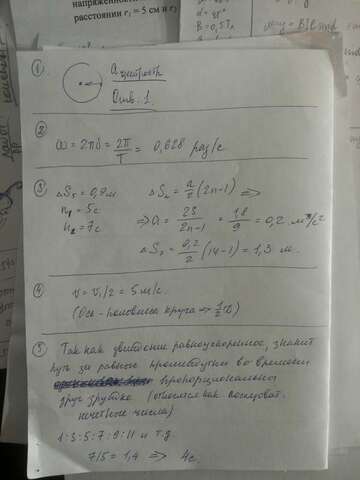 напряженност
расстоянии r₁ = 5 см и r₂
B = 0,5Тл
①
a центростр
Отв: 1
②
ω = 2πν = 2π/T = 0,628 рад/с
③ ΔS₅ = 0,9м ΔSₙ = a/2 (2n-1) =>
n₁ = 5с => a = 2S/2n-1 = 1,8/9 = 0,2 м/с²
n₂ = 7с
ΔS₇ = 0,2/2 (14-1) = 1,3 м.
④
v = v₁/2 = 5 м/с.
(Ось - половина круга => 1/2 v)
⑤ Так как движение равноускоренное, значит
путь за равные промежутки во времени
пропорциональны
друг другу (относятся как последоват.
нечётные числа)
1:3:5:7:9:11 и т.д.
7/5 = 1,4 => 4с